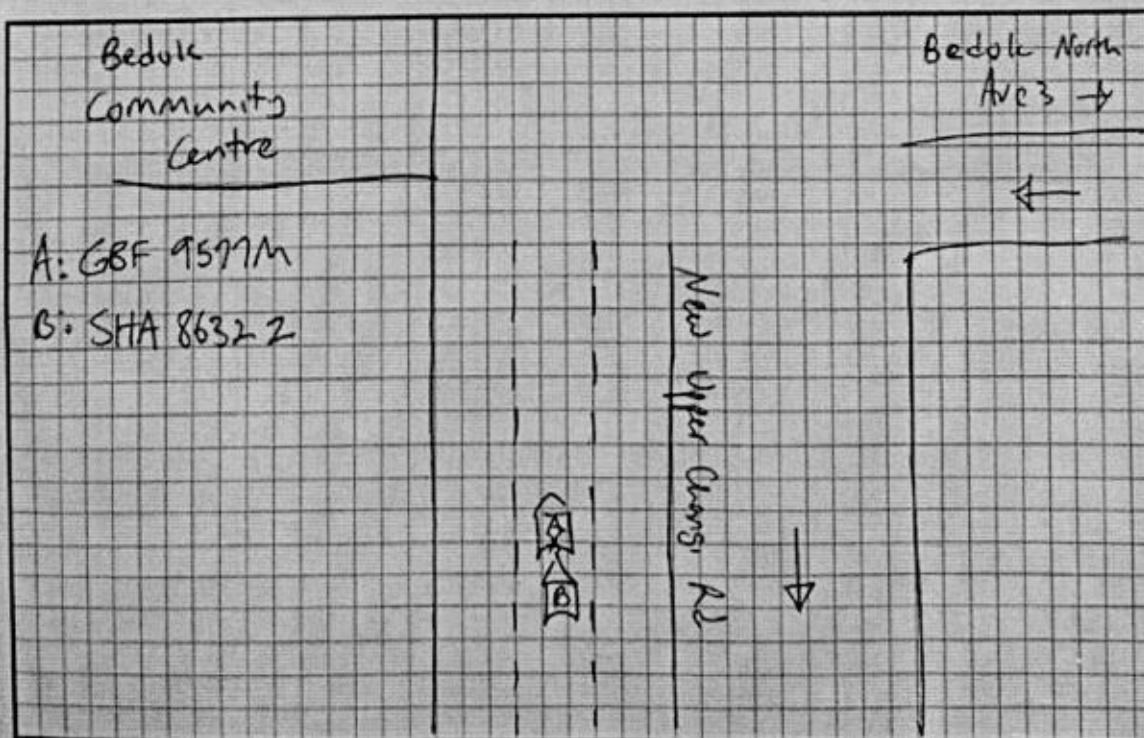 Bedok
Community
Centre
Bedok North
Ave 3
A: GBF 9577M
B: SHA 8632 Z
New Upper Changi Rd
A
B